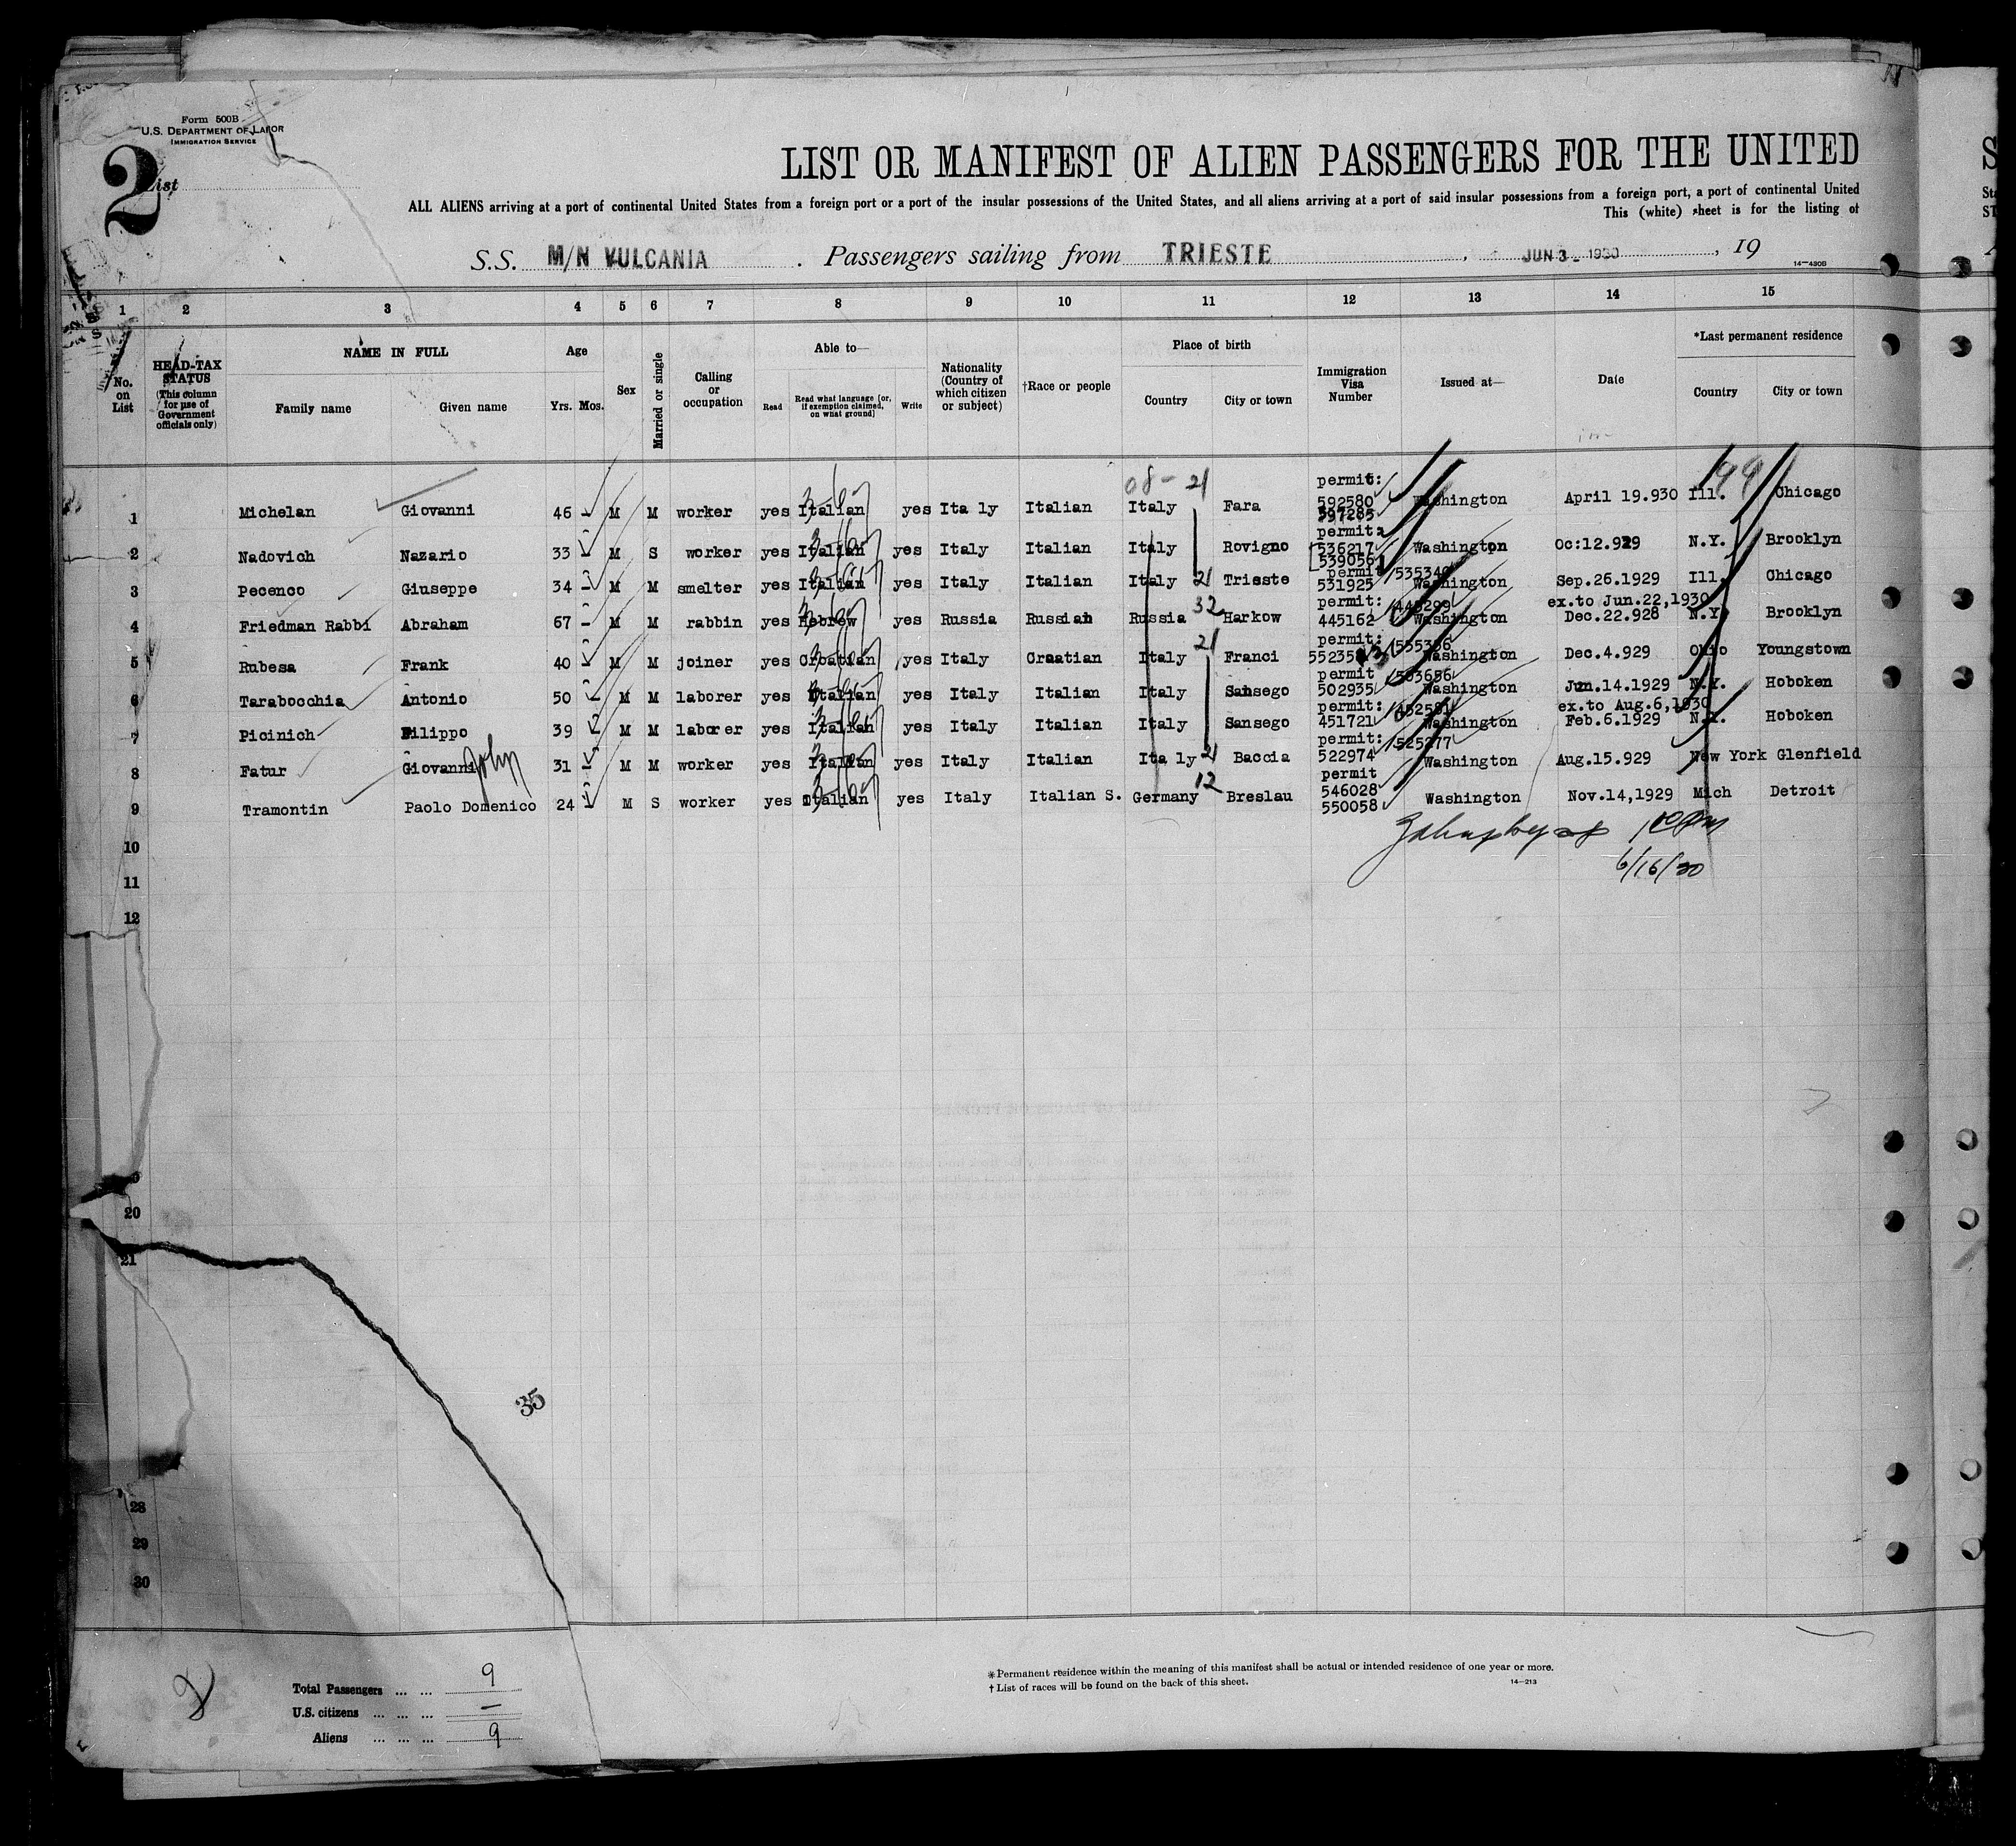 Form 500B
U.S. DEPARTMENT OF LABOR
IMMIGRATION SERVICE
2
List
LIST OR MANIFEST OF ALIEN PASSENGERS FOR THE UNITED
ALL ALIENS arriving at a port of continental United States from a foreign port or a port of the insular possessions of the United States, and all aliens arriving at a port of said insular possessions from a foreign port, a port of continental United
This (white) sheet is for the listing of
S.S. M/N VULCANIA . Passengers sailing from TRIESTE , JUN 3 - 1930 , 19
14-430B
1 2 3 4 5 6 7 8 9 10 11 12 13 14 15
No. on List
HEAD-TAX STATUS (This column for use of Government officials only)
NAME IN FULL
Family name Given name
Age
Yrs. Mos.
Sex
Married or single
Calling or occupation
Able to—
Read Read what language [or, if exemption claimed, on what ground] Write
Nationality (Country of which citizen or subject)
†Race or people
Place of birth
Country City or town
Immigration Visa Number
Issued at—
Date
*Last permanent residence
Country City or town
08- 21 permit: 199
1 Michelan Giovanni 46 - M M worker yes Italian yes Ita ly Italian Italy Fara 592580 597285 Washington April 19.930 Ill. Chicago
permit:
2 Nadovich Nazario 33 - M S worker yes Italian yes Italy Italian Italy Rovigno 536217 539056 Washington Oc:12.929 N.Y. Brooklyn
permit
3 Pecenco Giuseppe 34 - M M smelter yes Italian yes Italy Italian Italy 21 Trieste 531925 Washington Sep.26.1929 Ill. Chicago
permit: ex.to Jun.22,1930
4 Friedman Rabbi Abraham 67 - M M rabbin yes Hebrew yes Russia Russian Russia 32 Harkow 445162 445299 Washington Dec.22.928 N.Y. Brooklyn
21 permit: 555356
5 Rubesa Frank 40 - M M joiner yes Croatian yes Italy Croatian Italy Franci Washington Dec.4.929 Ohio Youngstown
permit 503656
6 Tarabocchia Antonio 50 - M M laborer yes Italian yes Italy Italian Italy Sansego 502935 Washington Jun.14.1929 N.Y. Hoboken
permit: 452581 ex.to Aug.6,1930
7 Picinich Filippo 39 M M laborer yes Italian yes Italy Italian Italy Sansego 451721 Washington Feb.6.1929 N.Y. Hoboken
permit: 525277
8 Fatur Giovanni John 31 - M M worker yes Italian yes Italy Italian Ita ly 21 Baccia 522974 Washington Aug.15.929 New York Glenfield
12 permit
9 Tramontin Paolo Domenico 24 M S worker yes Italian yes Italy Italian S. Germany Breslau 546028 550058 Washington Nov.14,1929 Mich Detroit
10
6/16/30
11
12
20
21
35
28
29
30
Total Passengers ... ... 9
U.S. citizens ... ... ... —
Aliens ... ... ... 9
*Permanent residence within the meaning of this manifest shall be actual or intended residence of one year or more.
†List of races will be found on the back of this sheet.
14-213